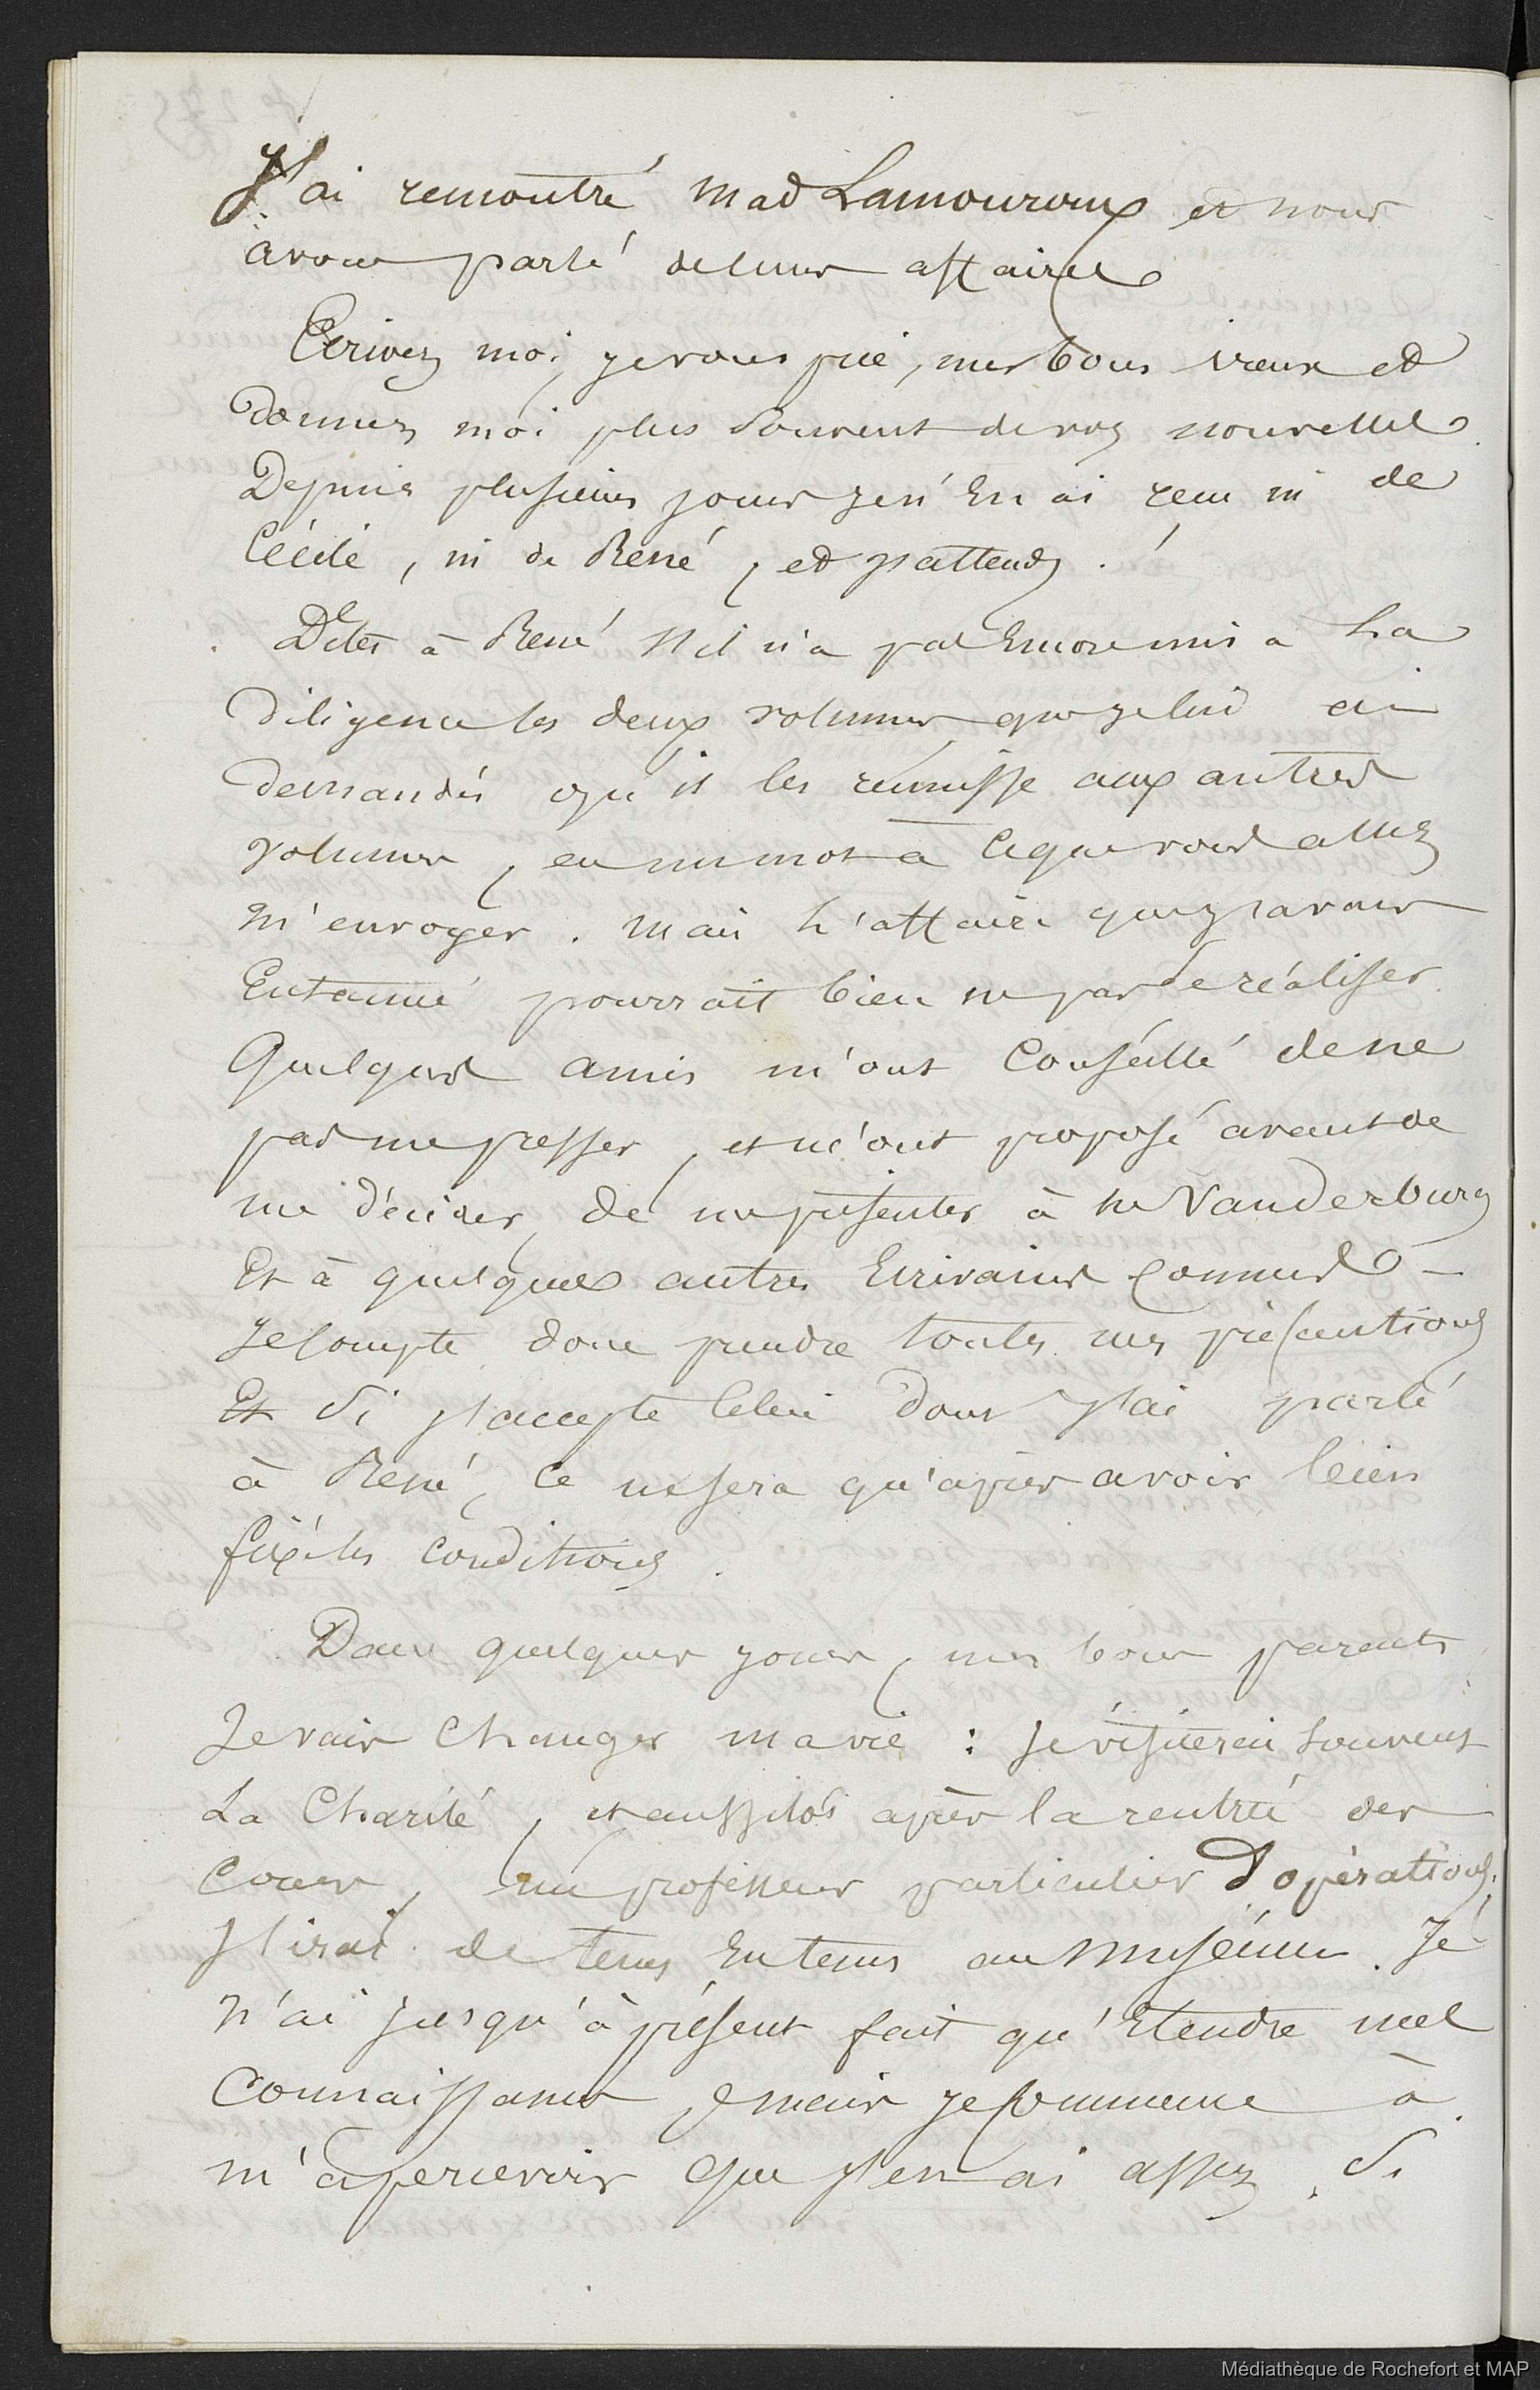 J'ai remontré Mad Lamouroux et nous
avons parlé de leurs affaires
Ecrivez moi, je vous prie, mes bons vieux et
Donnez moi plus souvent de vos nouvelles
Depuis plusieurs jours je n'en ai reçu ni de
Cécile, ni de René, et j'attends.
Dites à René s'il n'a pas encore mis a la
diligence les deux volumes que je lui ai
demandés qu'il les réunisse aux autres
volumes, en un mot a ce que vous allez
m'envoyer. Mais l'affaire que j'avais
Entamé pourrait bien ne pas se réaliser.
Quelques amis m'ont conseillé de ne
pas me presser, et m'ont proposé avant de
me décider, de me présenter à Mr Vanderburg
Et à quelques autres Ecrivains connus –
Je compte donc prendre toutes mes précautions
Et si j'accepte celui dont j'ai parlé
à René, ce ne sera qu'après avoir bien
fixé les conditions.
Dans quelques jours, mes bons parents
Je vais changer ma vie : je visiterai souvent
La Charité, et aussitôt après la rentrée des
Cours, un professeur particulier d'opérations.
J'irai de tems en tems au muséum. Je
n'ai jusqu'à présent fait qu'étendre mes
Connaissances, mais je commence à
m'apercevoir que j'en ai assez. Si
Médiathèque de Rochefort et MAP